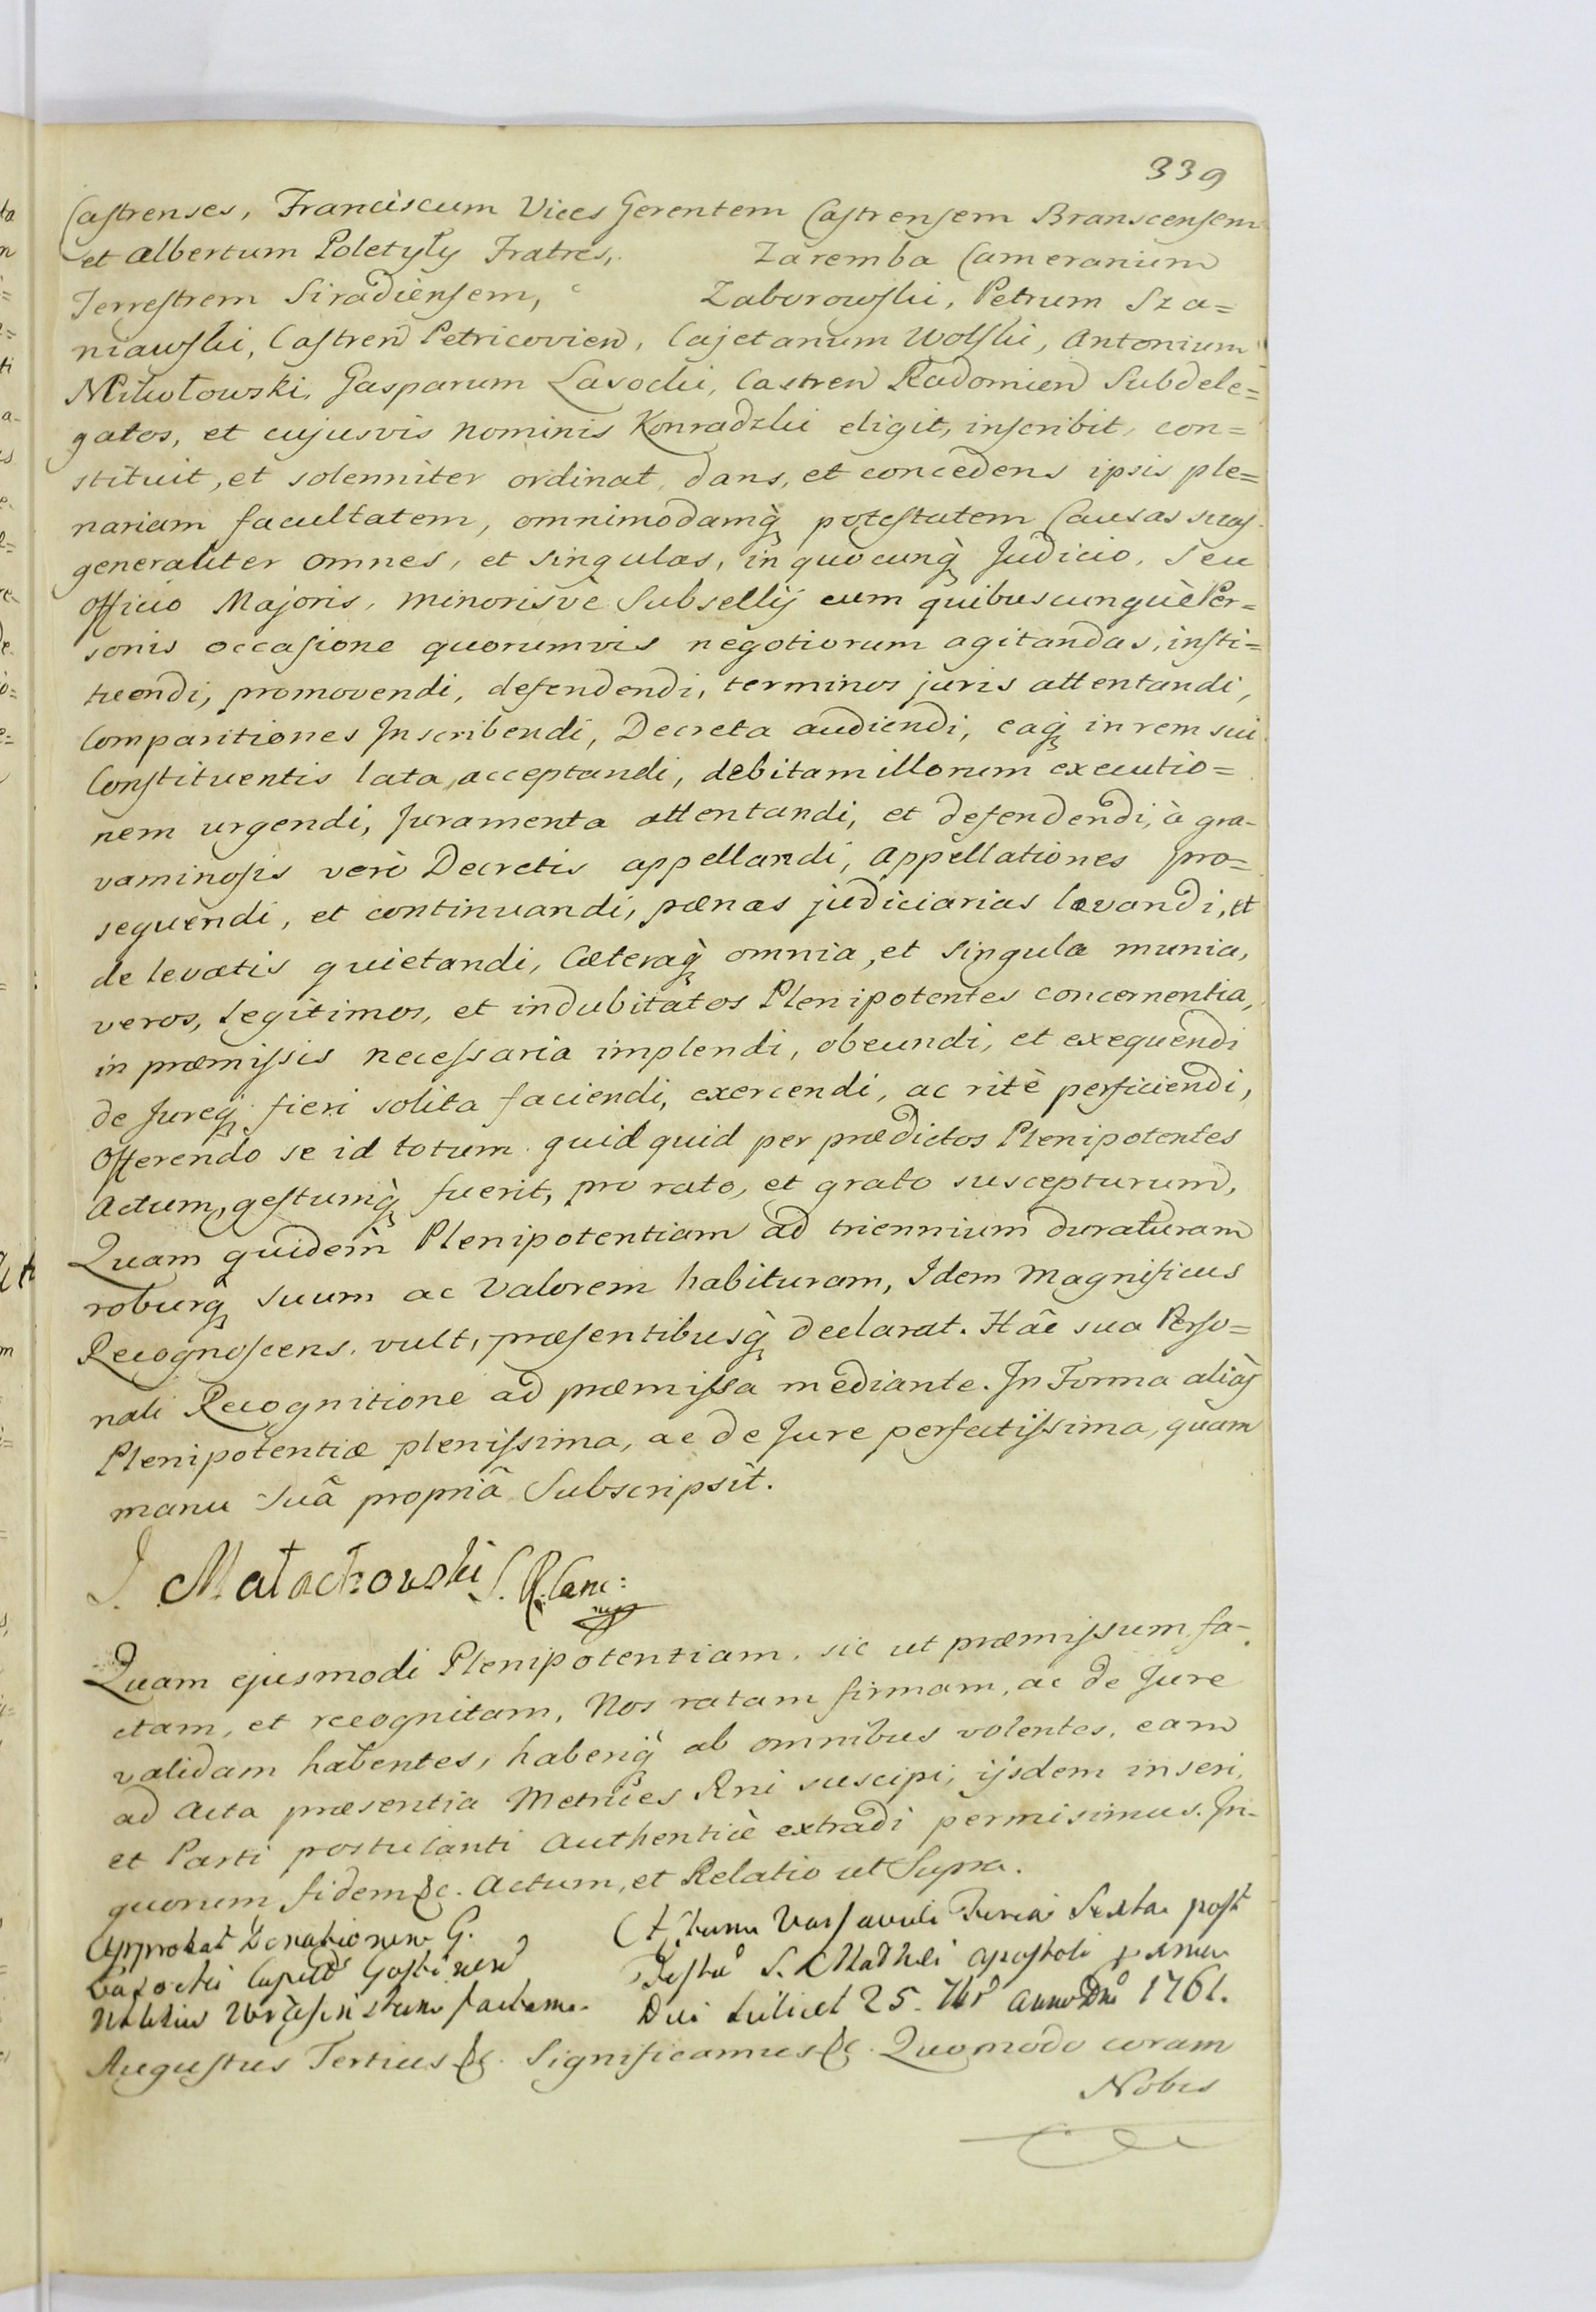 339
Castrenses, Franciscum Vices Gerentem Castrensem Branscensem
et Albertum Poletyły Fratres, Zaremba Cameranium
Terrestrem Siradiensem, Zaborowski, Petrum Sza=
niawski, Castren Petricovien, Cajetanum Wolski, Antonium
Mikołowski, Gasparum Lasocki, Castren Radomien Subdele=
gatos, et cujusvis nominis Konradzki eligit, inscribit, con=
stituit, et solenniter ordinat, dans, et concedens ipsis ple=
nariam facultatem, omnimodamq̀ potestatem Causas suas
generaliter omnes, et singulas, in quocunq̀ Judicio, seu
Officio Majoris, minorisvè Subsellij cum quibuscunquè Per=
sonis occasione quorumvis negotiorum agitandas, insti=
tuendi, promovendi, defendendi, terminos juris attentandi,
Comparitiones Inscribendi, Decreta audiendi, eaq̀ in rem sui
Constituentis lata, acceptandi, debitam illorum executio=
nem urgendi, Juramenta attentandi, et defendendi, à gra-
vaminosis verò Decretis appellandi, Appellationes pro=
sequendi, et continuandi, pænas judiciarias levandi, et
de levatis quietandi, Cæteraq̀ omnia, et singula munia,
veros, legitimos, et indubitatos Plenipotentes concernentia,
in præmissis necessaria implendi, obeundi, et exequendi
de Jureq̀ fieri solita faciendi, exercendi, ac ritè perficiendi,
Offerendo se id totum quid quid per prædictos Plenipotentes
Actum, gestumq̀ fuerit, pro rato, et grato suscepturum,
Quam quidem Plenipotentiam ad triennium duraturam
roburq̀ suum ac valorem habituram, Idem Magnificus
Recognoscens, vult, præsentibusq̀ declarat. Hâc sua Perso=
nali Recognitione ad præmissa mediante. In Forma aliàs
Plenipotentiæ plenissima, ac de Jure perfectissima, quam
manu suâ propriâ Subscripsit.
J. Małachowski S. R. Canc:
Quam ejusmodi Plenipotentiam, sic ut præmissum fa-
ctam, et recognitam, Nos ratam firmam, ac de Jure
validam habentes, haberiq̀ ab omnibus volentes, eam
ad Acta præsentia Metrices Rni suscipi, ijsdem inseri,
et Parti postulanti Authenticè extradi permisimus. In
quorum fidem &c. Actum, et Relatio ut Supra.
Approbat Donationem G.
Lasocki Capitt Gostinen
Actum Varsaviæ Feria Sexta post
Festū S. Mathei Apostoli
Dni scilicet 25. 7br Anno Dni 1761.
Augustus Tertius &c. Significamus &c. Quomodo coram
Nobis